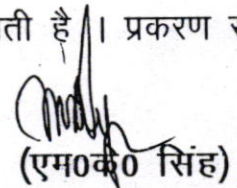 ती है । प्रकरण
(एम0के0 सिंह)